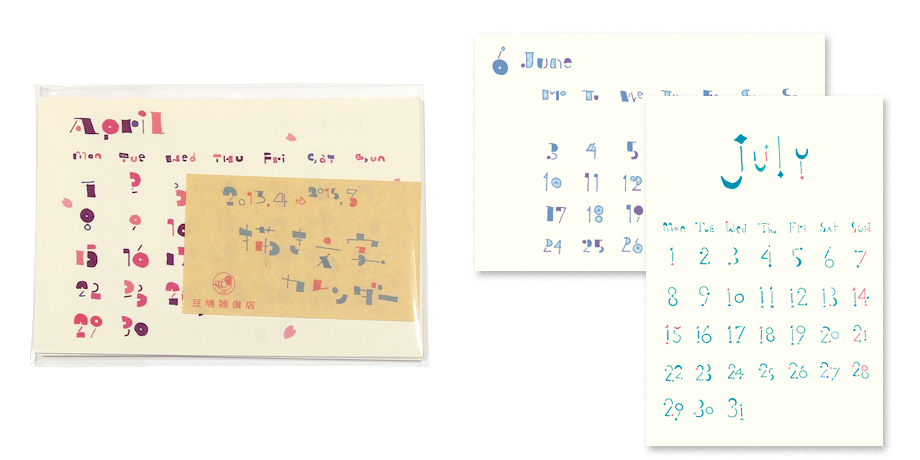 April
Mon Tue Wed Thu Fri Sat Sun
1 2
8 9
15 16
22 23
29 30
2013.4⇨2015.3
描き文字
カレンダー
豆鳩雑貨店
6 June
Mo Tu We
3 4 5
10 11 12
17 18 19
24 25 26
July
Mon Tue Wed Thu Fri Sat Sun
1 2 3 4 5 6 7
8 9 10 11 12 13 14
15 16 17 18 19 20 21
22 23 24 25 26 27 28
29 30 31